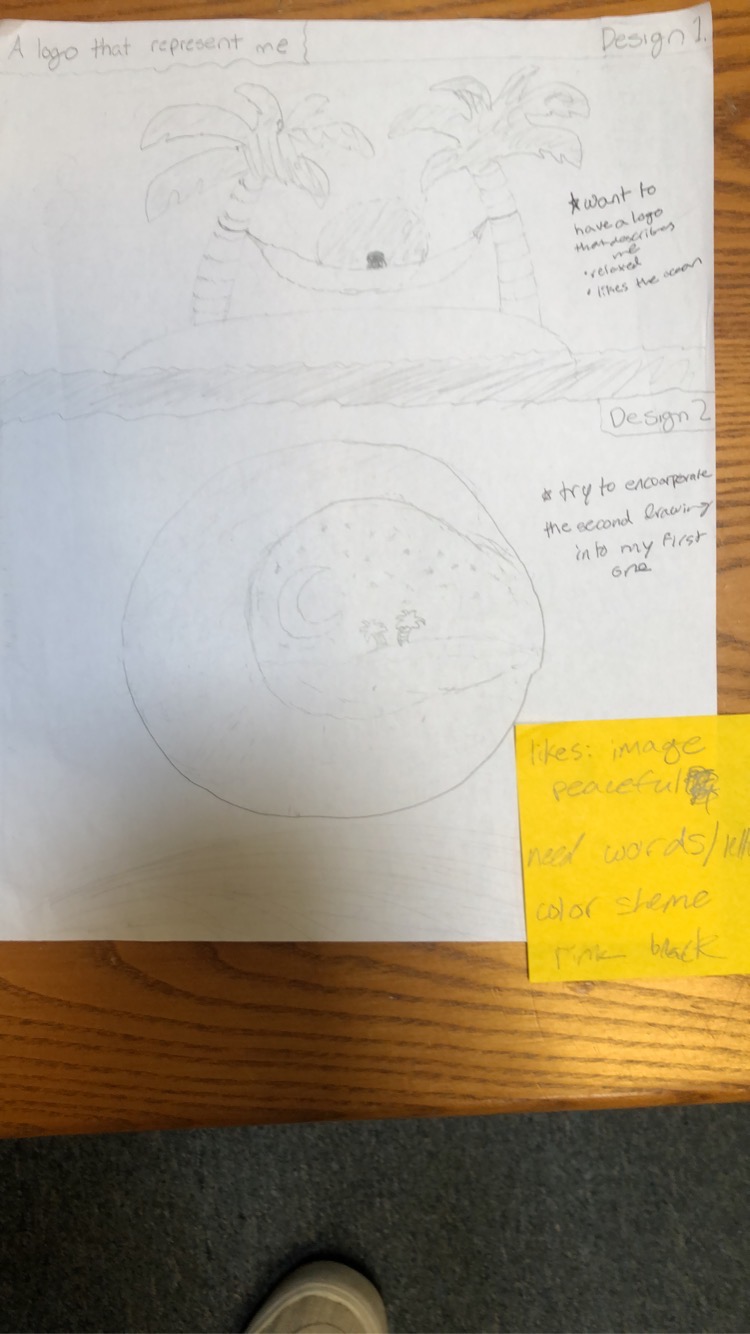 A logo that represent me
Design 1.
*want to
have a logo
that describes
me
• relaxed
• likes the ocean
Design 2
* try to encoarperate
the second drawing
into my first
one
likes: image
peaceful
need words/
color sheme
pink black